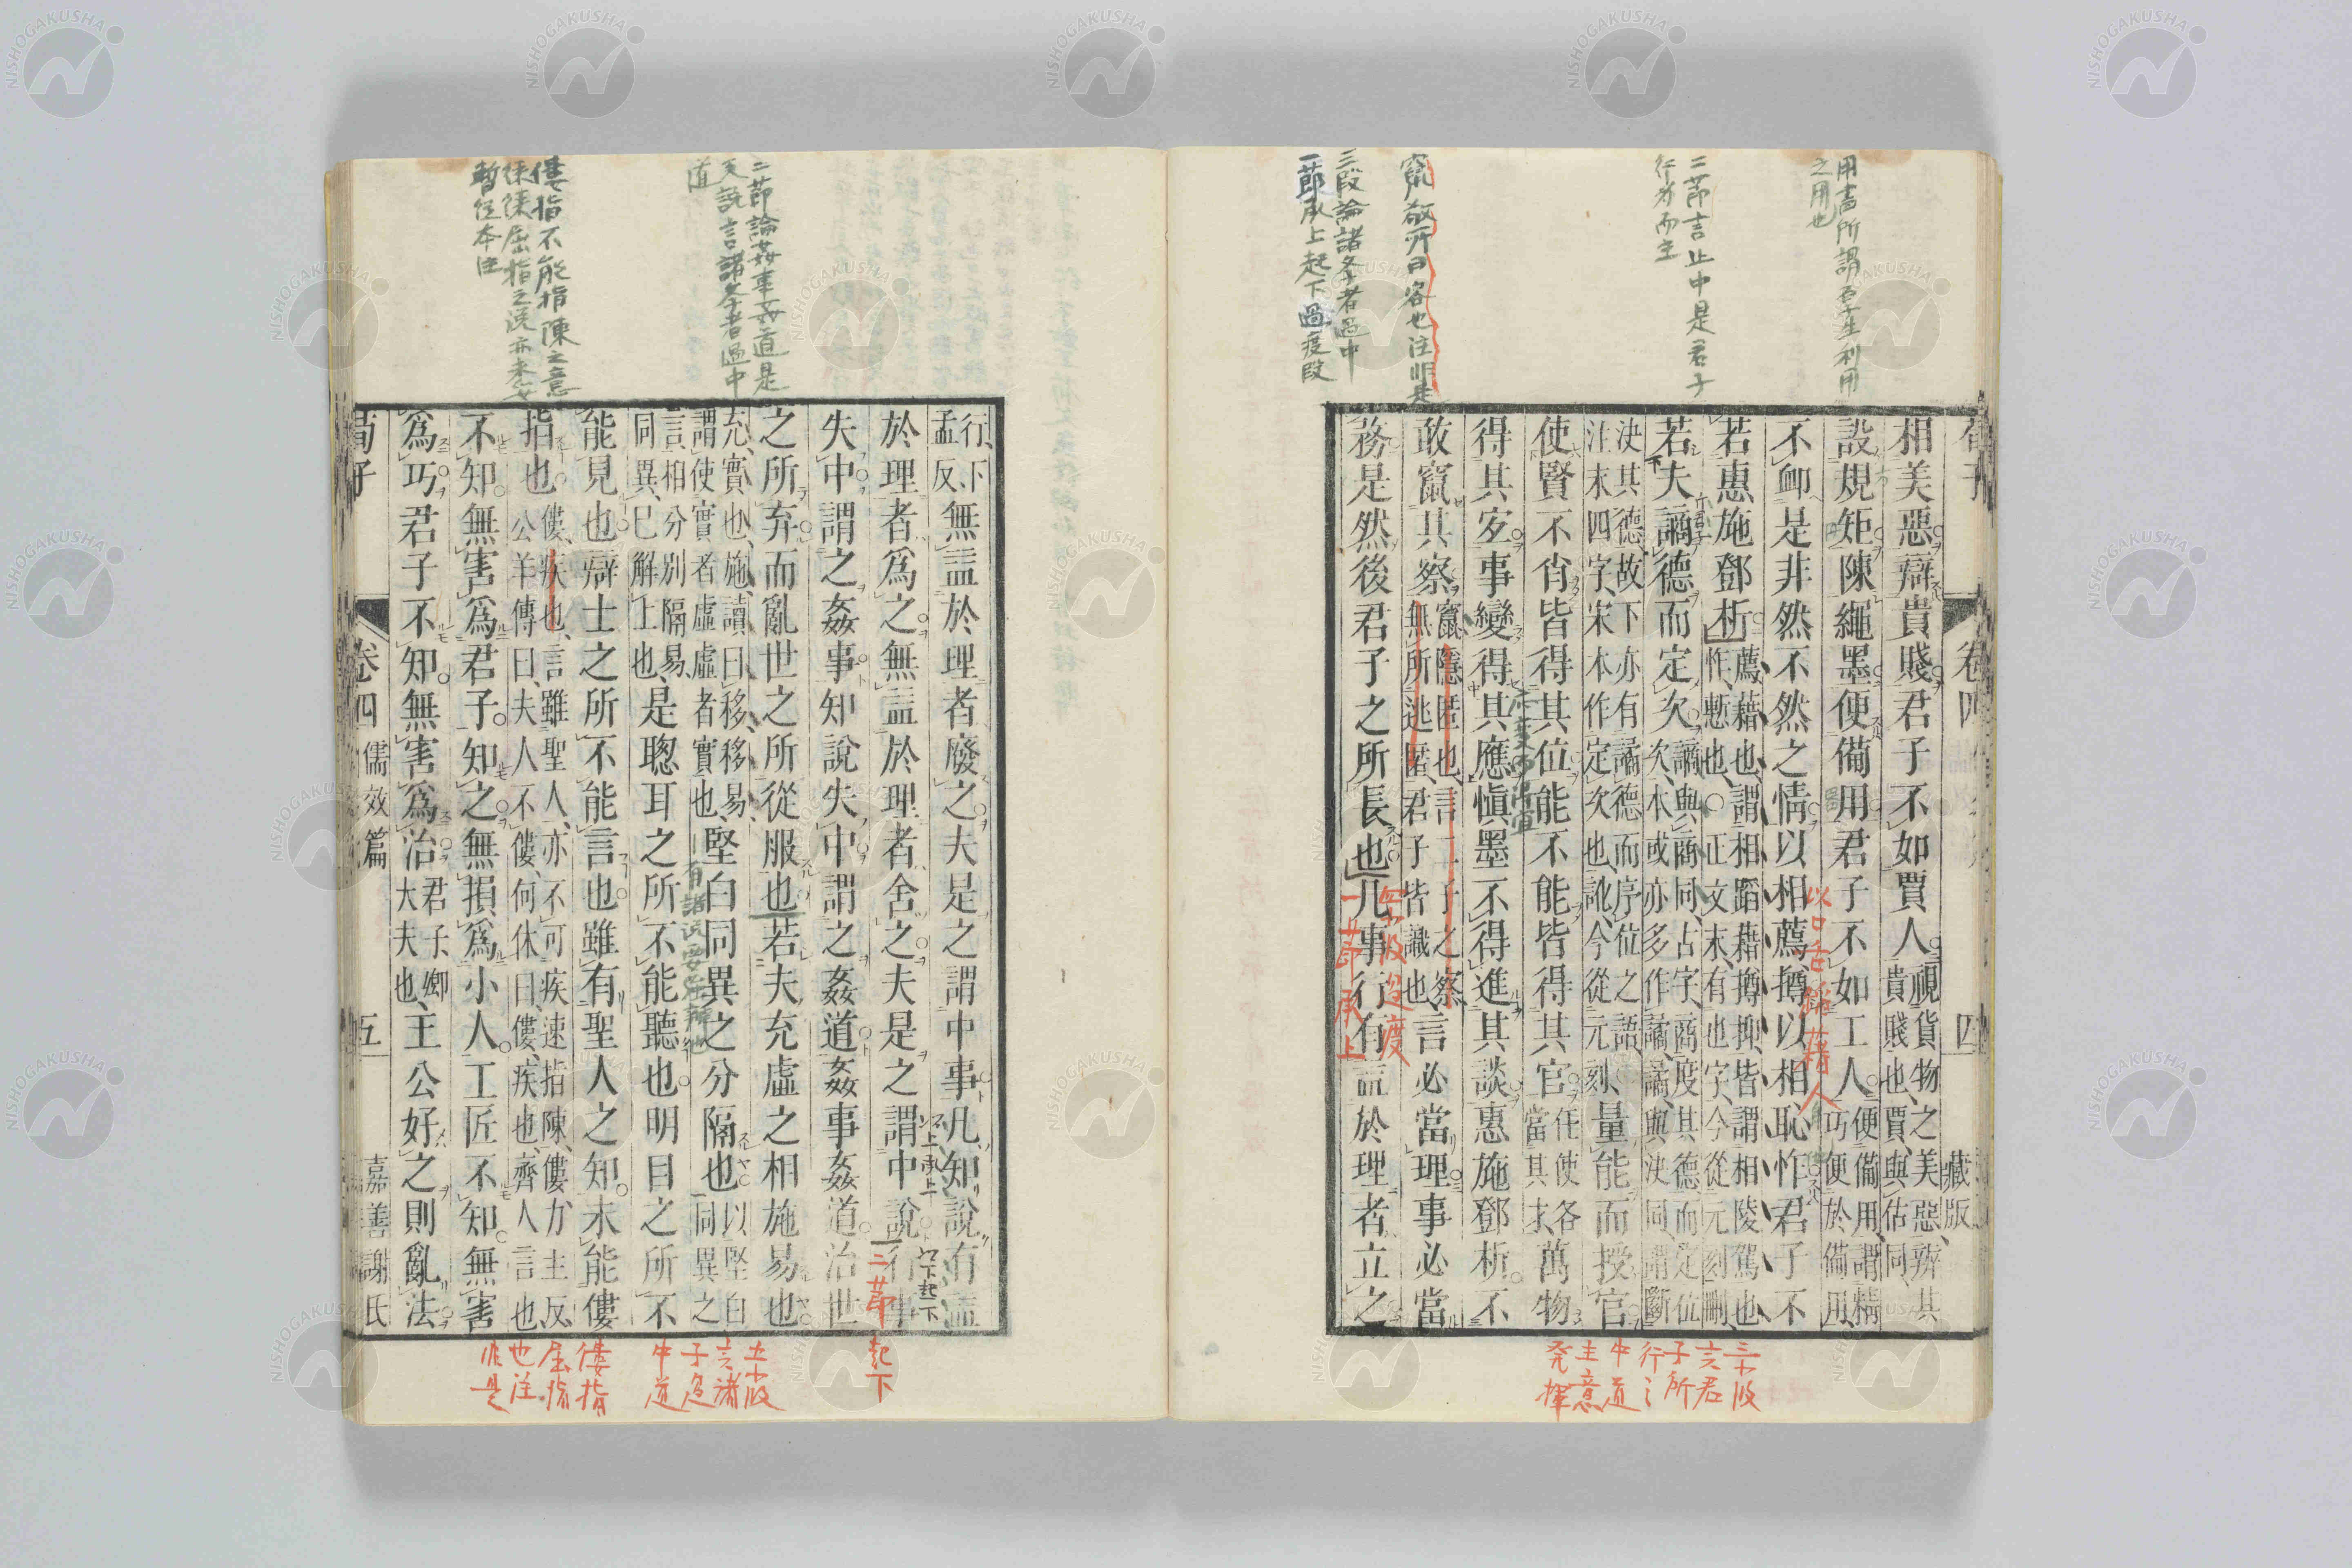 用書所謂厚生利用
之用也
二節言止中是君子
三段論諸子者過中
一節承上起下過度段
荀子
卷四
四
藏版
相美惡辯貴賤君子不如賈人
視貨物之美惡辨其
貴賤也賈與估同
設規矩陳繩墨便備用君子不如工人
便備用謂精
巧便於備用
不卹是非然不然之情以相薦撙以相恥怍君子不
若惠施鄧析
薦藉也謂相蹈藉撙抑皆謂相陵駕也
怍慙也○正文末有也字今從元刻刪
若夫謫德而定次
謫與商同古字商度其德而定位
次本或亦多作譎譎與決同謂斷
決其德故下亦有譎德而序位之語
注末四字宋本作定次也訛今從元刻
量能而授官
使賢不肖皆得其位能不能皆得其官
任使各
當其才
萬物
得其宐事變得其應愼墨不得進其談惠施鄧析不
敢竄其察
竄隱匿也言二子之察
無所逃匿君子皆識也
言必當理事必當
務是然後君子之所長也凡事行有益於理者立之
以口舌蹈藉人
一節承上
三小段
言君
子所
行之
中道
主意
発揮
二節論姦事姦道是
天說言諸子者過中
道
僂指不能指陳之意
暫從本注
行下
孟反
無益於理者廢之夫是之謂中事凡知說有益
於理者爲之無益於理者舍之夫是之謂中說行事
失中謂之姦事知說失中謂之姦道姦事姦道治世
之所弃而亂世之所從服也若夫充虛之相施易也
充實也施讀曰移移易
謂使實者虛虛者實也
堅白同異之分隔也
以堅白
同異之
言相分別隔易
同異已解上也
是聰耳之所不能聽也明目之所不
能見也辯士之所不能言也雖有聖人之知未能僂
指也
僂疾也言雖聖人亦不可疾速指陳僂力主反
公羊傳曰夫人不僂何休曰僂疾也齊人言也
不知無害爲君子知之無損爲小人工匠不知無害
爲巧君子不知無害爲治
君子卿
大夫也
王公好之則亂法
荀子
卷四
儒效篇
五
嘉善謝氏
二節
起下
五小段
言諸
子過
中道
僂指
屈指
也注
非是